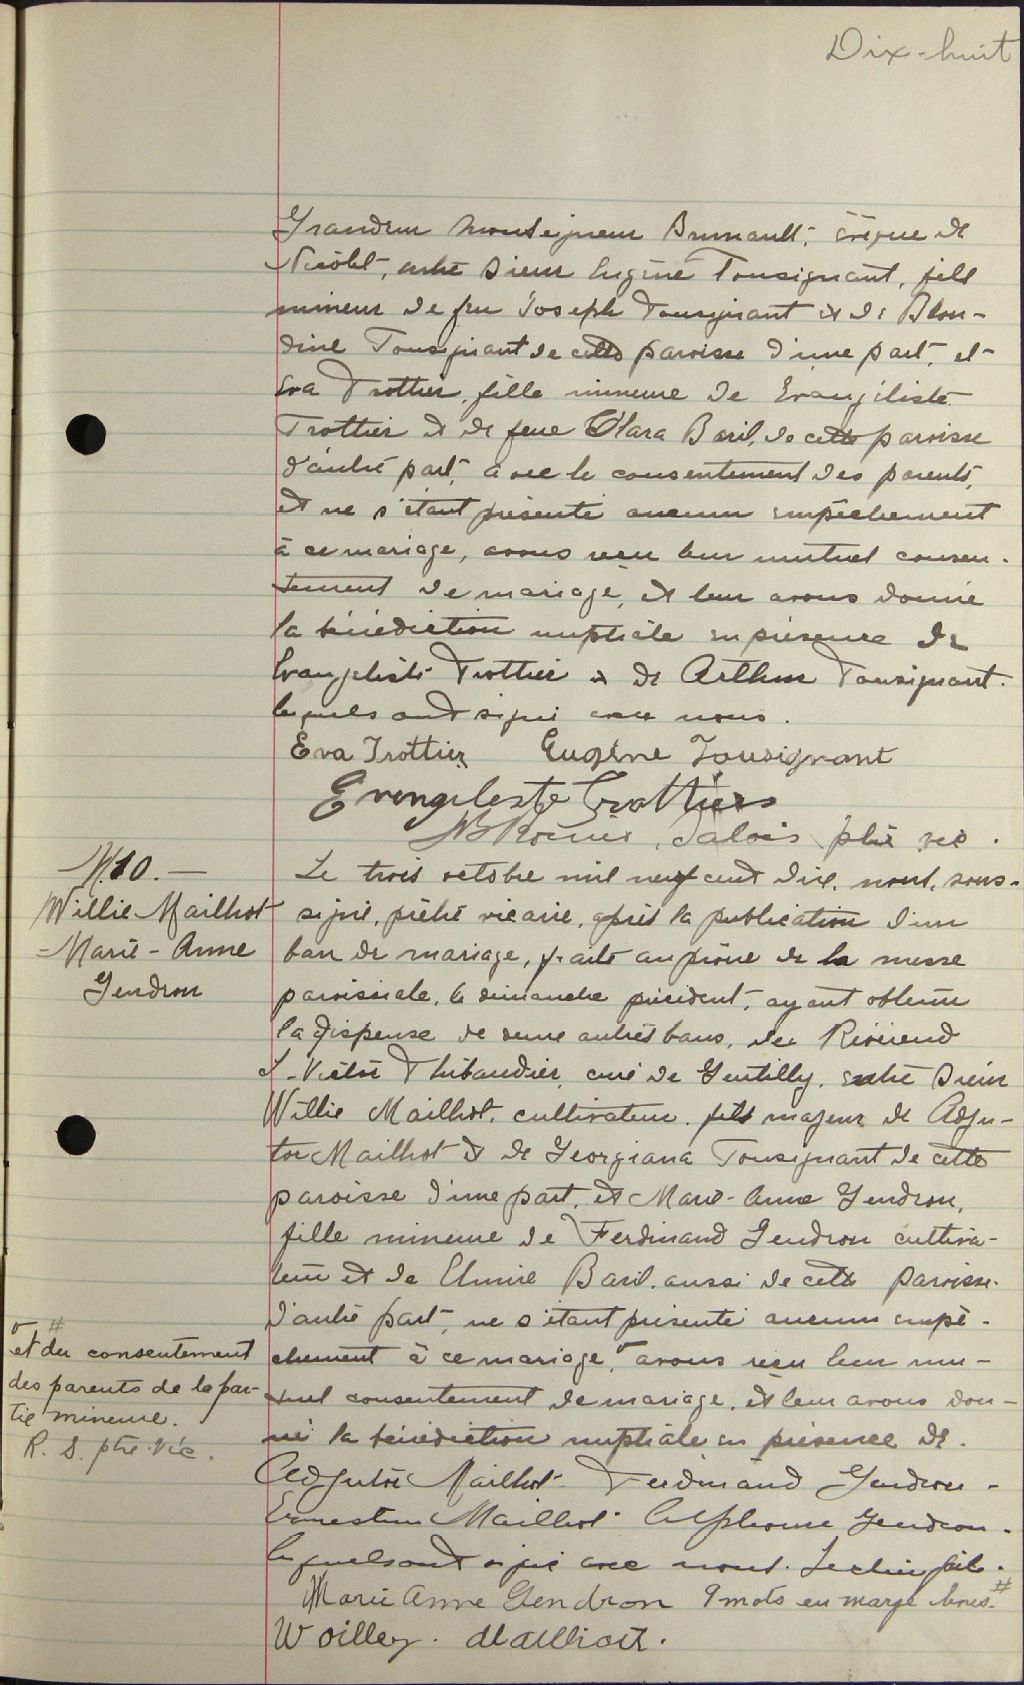 Dix-huit
Grandeur Monseigneur Brunault, évêque de
Nicolet, entre Sieur Eugène Tousignant, fils
mineur de feu Joseph Tousignant et de Blon-
dine Tousignant de cette paroisse d'une part, et
Eva Trottier, fille mineure de Evangéliste
Trottier et de feue Clara Baril, de cette paroisse
d'autre part, avec le consentement des parents,
et ne s'étant présenté aucun empêchement
à ce mariage, avons reçu leur mutuel consen-
tement de mariage, et leur avons donné
la bénédiction nuptiale en présence de
Evangéliste Trottier & de Arthur Tousignant.
lesquels ont signé avec nous.
Eva Trottier Eugène Tousignant
Evengeleste Trottiers
Salois ptre vic.
M.10.—
Willie Mailhot
-Marie-Anne
Gendron
Le trois octobre mil neuf cent dix, nous, sous-
signé, prêtre vicaire, après la publication d'un
ban de mariage, faite au prône de la messe
paroissiale, le dimanche précédent, ayant obtenu
la dispense de deux autres bans, du Révérend
L-Victor Thibaudier, curé de Gentilly, entre Sieur
Willie Mailhot, cultivateur, fils majeur de Adju-
tor Mailhot et de Georgiana Tousignant de cette
paroisse d'une part, et Marie-Anne Gendron,
fille mineure de Ferdinand Gendron cultiva-
teur et de Elmire Baril, aussi de cette paroisse
d'autre part, ne s'étant présenté aucun empê-
chement à ce mariage, avons reçu leur mu-
tuel consentement de mariage, et leur avons don-
né la bénédiction nuptiale en présence de
Adjutor Mailhot Ferdinand Gendron -
Ernestine Mailhot Alphonse Gendron.
lesquels ont signé avec nous. Lecture faite.
#
et du consentement
des parents de la par-
tie mineure.
R. S. ptre. vic.
Marie Anne Gendron 9 mots en marge bons #
Woilley. Mailhot.